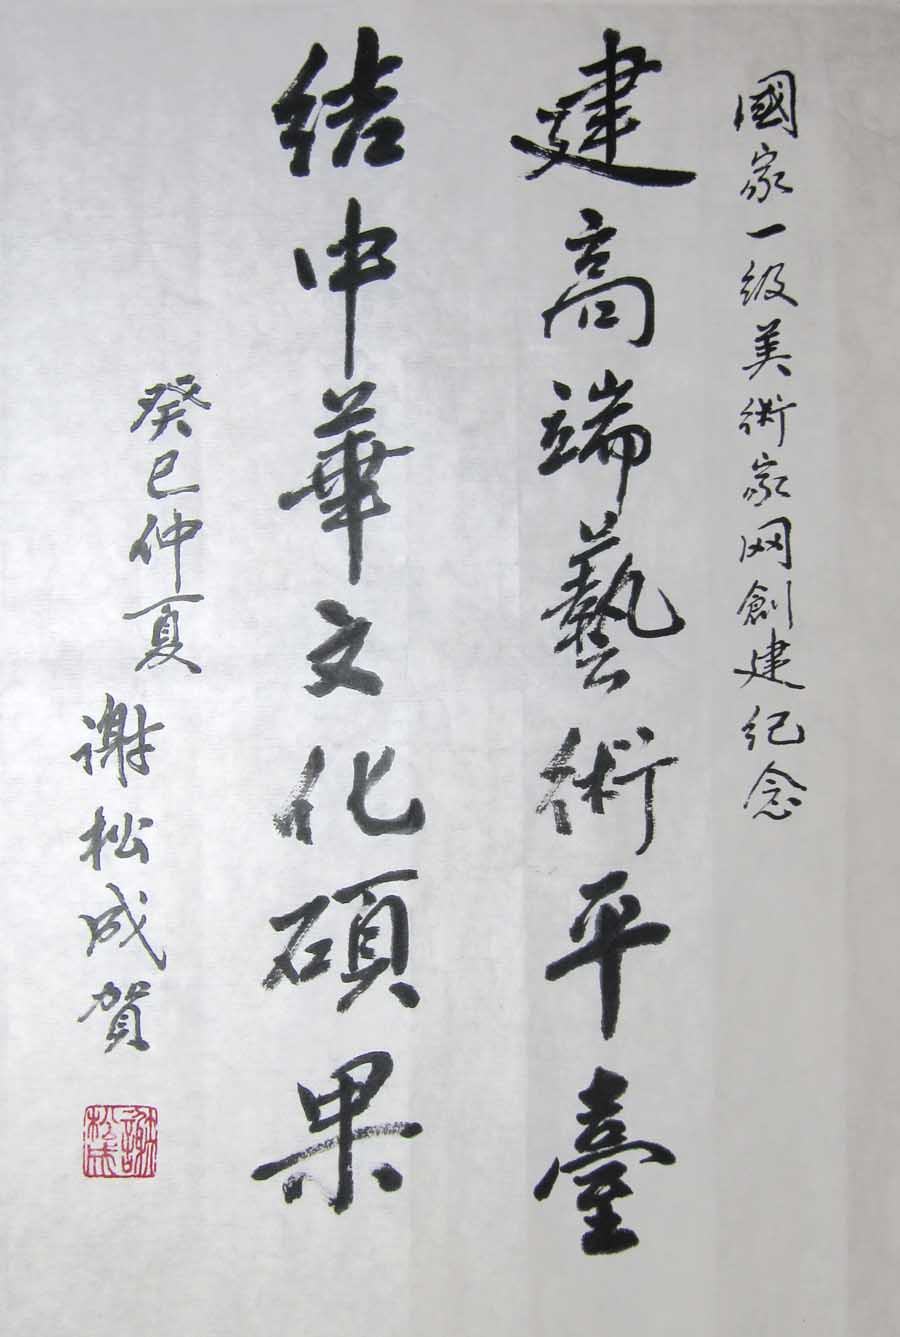 國家一级美術家网創建纪念
建高端藝術平臺
结中華文化碩果
癸巳仲夏
谢松成賀
謝松成